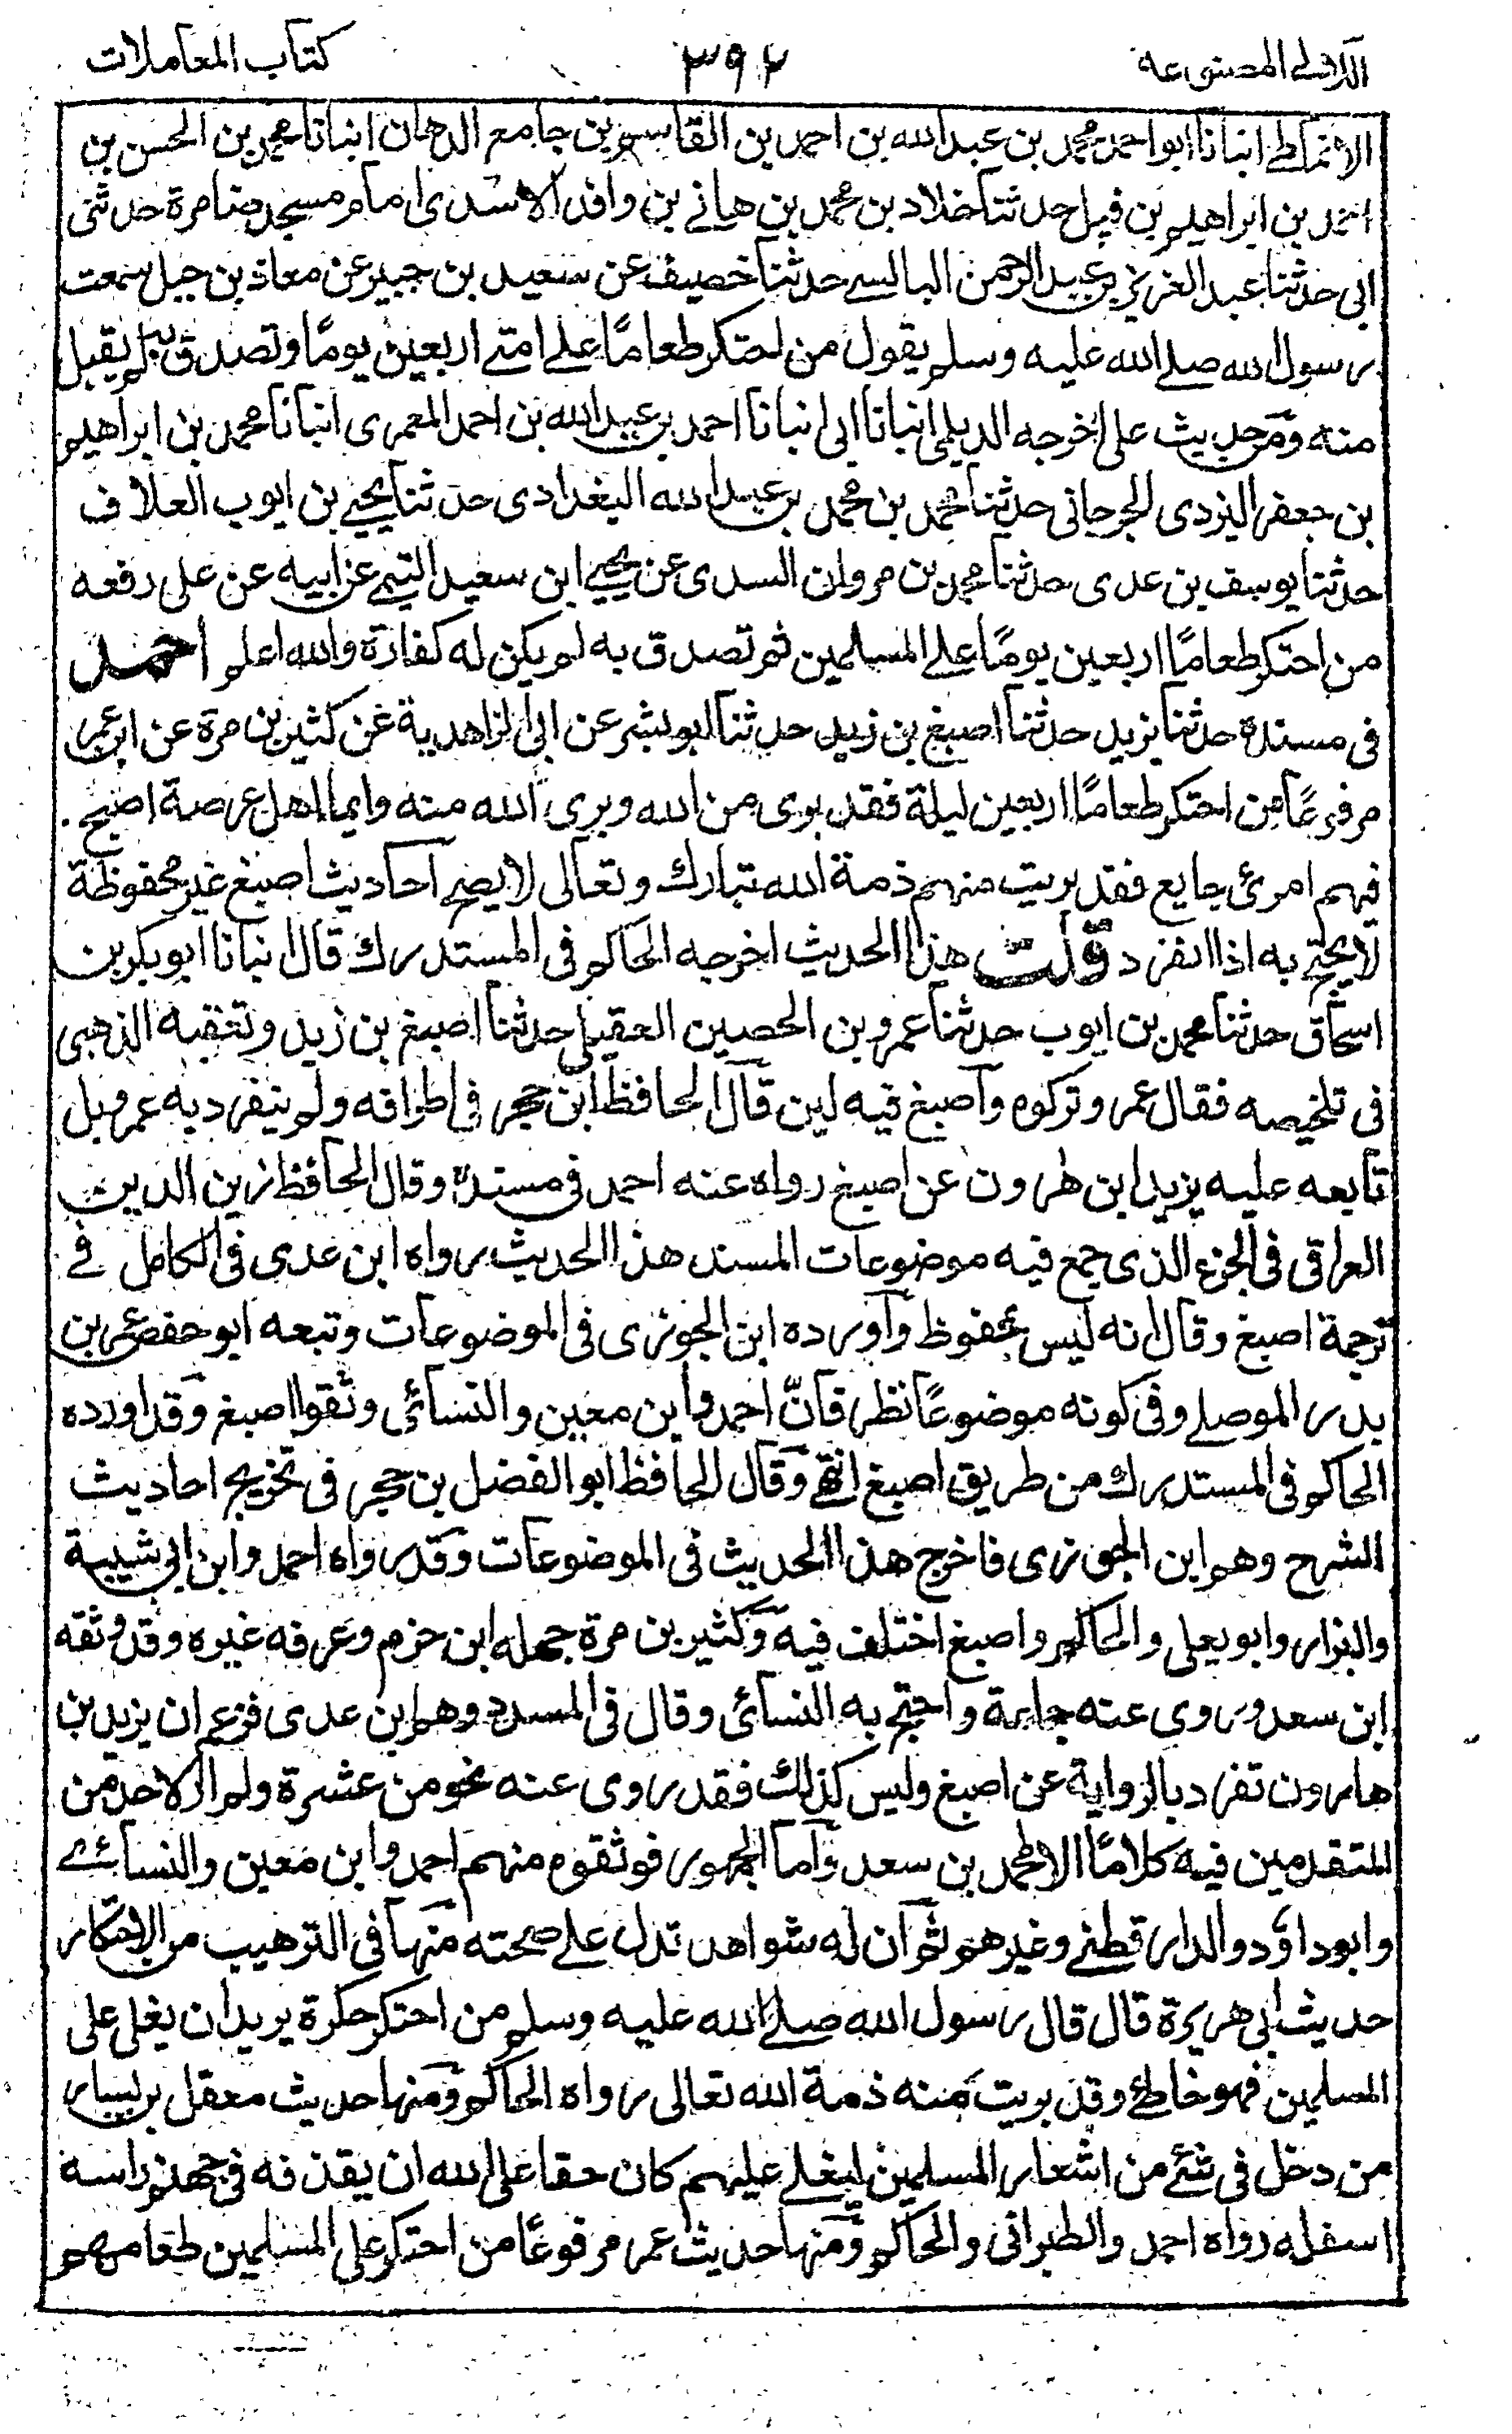 اللآلي المصنوعة ٣٩٢ كتاب المعاملات
الانماطے انبانا ابو احمد محمد بن عبد الله بن احمد بن القاسم بن جامع الدهان انبانا محمد بن الحسن بن
احمد بن ابراهيم بن فيل حدثنا خلاد بن محمد بن هانے بن واقد الاسدى امام مسجد صنامرة حدثنى
ابى حدثنا عبد العزيز بن عبد الرحمن البالسے حدثنا خصيف عن سعيد بن جبير عن معاذ بن جبل سمعت
رسول الله صلے الله عليه وسلم يقول من احتكر طعامًا علے امتے اربعين يومًا وتصدق به لم يقبل
منه ومن حديث على اخرجه الديلمى انبانا ابى انبانا احمد بن عبيد الله بن احمد المعمرى انبانا محمد بن ابراهيم
بن جعفر اليزدى الجرجانى حدثنا محمد بن محمد بن عبد الله البغدادى حدثنا يحيے بن ايوب العلاف
حدثنا يوسف بن عدى حدثنا محمد بن مروان السدى عن يحيے ابن سعيد التيمى عن ابيه عن على رفعه
من احتكر طعامًا اربعين يومًا علے المسلمين ثم تصدق به لم يكن له كفارة والله اعلم احمد
فى مسنده حدثنا يزيد حدثنا اصبغ بن زيد حدثنا ابو بشر عن ابى الزاهدية عن كثير بن مرة عن ابن عمر
مرفوعًا من احتكر طعامًا اربعين ليلة فقد برى من الله وبرى الله منه وايما اهل عرصة اصبح
فيهم امرئ جايع فقد بريت منهم ذمة الله تبارك وتعالى لا يصح احاديث اصبغ غير محفوظة
لا يحتج به اذا انفرد قلت هذا الحديث اخرجه الحاكم فى المستدرك قال انبانا ابو بكر بن
اسحاق حدثنا محمد بن ايوب حدثنا عمرو بن الحصين العقيلى حدثنا اصبغ بن زيد وتعقبه الذهبى
فى تلخيصه فقال عمرو تركوه واصبغ فيه لين قال الحافظ ابن حجر فى اطرافه ولم ينفرد به عمرو بل
تابعه عليه يزيد ابن هرون عن اصبغ رواه عنه احمد فى مسنده وقال الحافظ زين الدين
العراقى فى الجزء الذى جمع فيه موضوعات المسند هذا الحديث رواه ابن عدى فى الكامل فے
ترجمة اصبغ وقال انه ليس بمحفوظ واورده ابن الجوزى فى الموضوعات وتبعه ابو حفص عمر بن
بدر الموصلے وفى كونه موضوعًا نظر فانّ احمد وابن معين والنسائى وثقوا اصبغ وقد اورده
الحاكم فى المستدرك من طريق اصبغ انتهے وقال الحافظ ابو الفضل بن حجر فى تخريج احاديث
الشرح وهم ابن الجوزى فاخرج هذا الحديث فى الموضوعات وقد رواه احمد وابن ابى شيبة
والبزار وابو يعلى والحاكم واصبغ اختلف فيه وكثير بن مرة جهله ابن حزم وعرفه غيره وقد وثقه
ابن سعد وروى عنه جماعة واحتج به النسائى وقال فى المسدد وهم ابن عدى فزعم ان يزيد بن
هارون تفرد بالرواية عن اصبغ وليس كذلك فقد روى عنه نحو من عشرة ولم ار لاحد من
المتقدمين فيه كلامًا الا لمحمد بن سعد واما الجمهور فوثقوه منهم احمد وابن معين والنسائے
وابو داؤد والدارقطنے وغيرهم ثم ان له شواهد تدل علے صحته منها فى الترهيب من الاحتكار
حديث ابى هريرة قال قال رسول الله صلے الله عليه وسلم من احتكر حكرة يريد ان يغلى على
المسلمين فهو خاطئ وقد بريت منه ذمة الله تعالى رواه الحاكم ومنها حديث معقل بن يسار
من دخل فى شئ من اشعار المسلمين ليغلے عليهم كان حقا على الله ان يقذفه فى جهنم راسه
اسفله رواه احمد والطبرانى والحاكم ومنها حديث عمر مرفوعًا من احتكر على المسلمين طعامهم